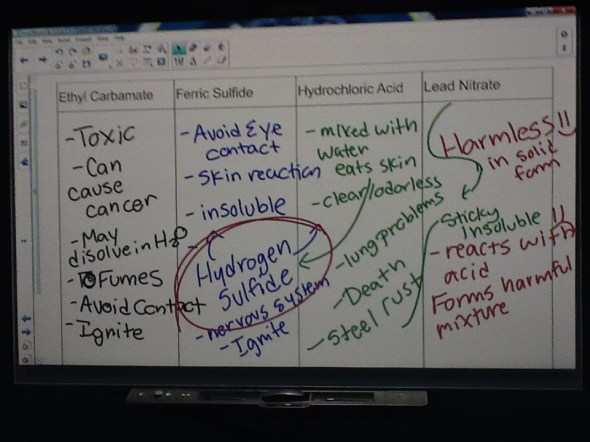 Ethyl Carbamate
Ferric Sulfide
Hydrochloric Acid
Lead Nitrate
-Toxic
-Can
cause
cancer
-May
disolve in H2O
Fumes
-Avoid Contact
-Ignite
-Avoid Eye
contact
-skin reaction
-insoluble
Hydrogen
Sulfide
-nervous system
-Ignite
-mixed with
water
eats skin
-clear/odorless
-lung problems
-Death
-Steel rust
Harmless!!
in solid
form
Sticky
Insoluble !!
-reacts with
acid
Forms harmful
mixture